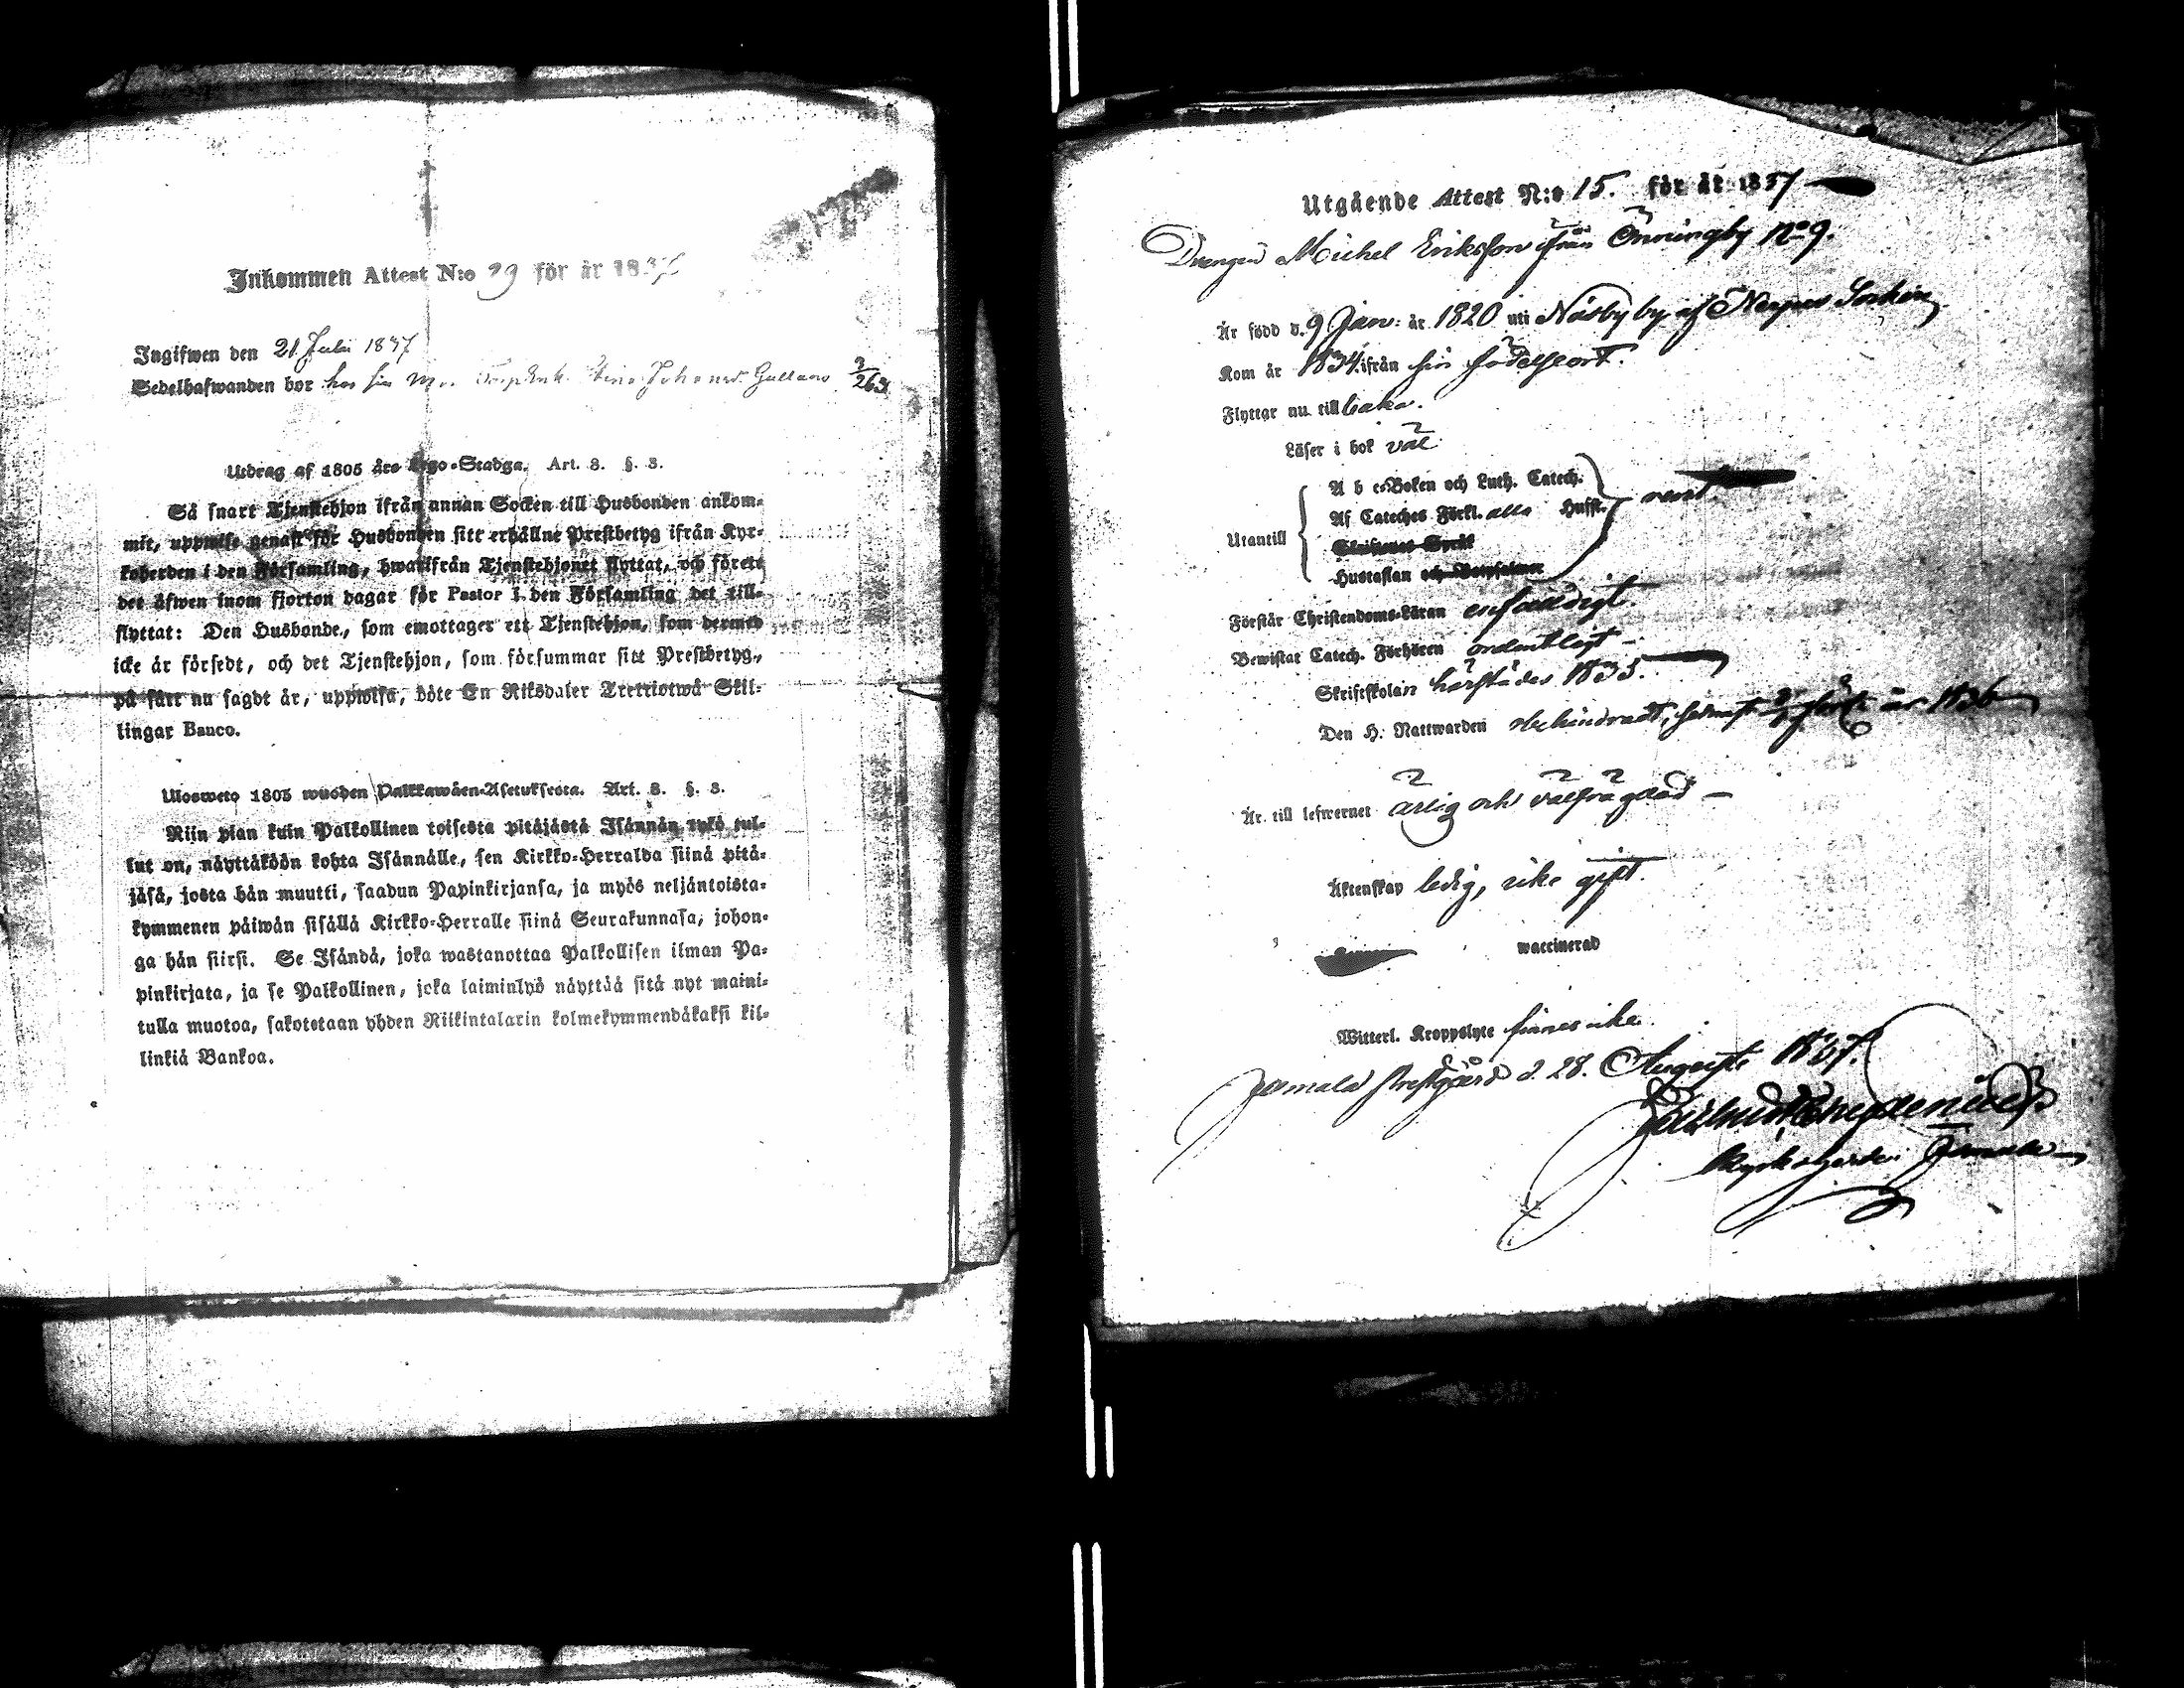 Inkommen Attest N:o 29 för år 1837
Ingifwen den 21 Julii 1837
Sedelhafwanden bor hos sin
Utdrag af 1805 års Lego-Stadga. Art. 8. §. 3.
Så snart Tjenstehjon ifrån annan Socken till Husbonden ankom-
mit, uppwise genast för Husbonden sitt erhållne Prestbetyg ifrån Kyr-
koherden i den Församling, hwarifrån Tjenstehjonet flyttat, och förete
det äfwen inom fjorton dagar för Pastor i den Församling det till-
flyttat: Den Husbonde, som emottager ett Tjenstehjon, som dermed
icke är försedt, och det Tjenstehjon, som försummar sitt Prestbetyg,
på sätt nu sagdt är, uppwisa, böte En Riksdaler Trettiotwå Skil-
lingar Banco.
Ulosweto 1805 wuoden Palkkawäen-Asetuksesta. Art. 8. §. 3.
Niin pian kuin Palkollinen toisesta pitäjästä Isännän tykö tul-
lut on, näyttäköön kohta Isännälle, sen Kirkko-Herralda siinä pitä-
jäsä, josta hän muutti, saadun Papinkirjansa, ja myös neljäntoista-
kymmenen päiwän sisällä Kirkko-Herralle siinä Seurakunnasa, johon-
ga hän siirsi. Se Isändä, joka wastanottaa Palkollisen ilman Pa-
pinkirjata, ja se Palkollinen, joka laiminlyö näyttää sitä nyt maini-
tulla muotoa, sakotetaan yhden Riikintalarin kolmekymmendäkaksi kil-
linkiä Bankoa.
Utgående Attest N:o 15. för år 1837
Drengen Michel Eriksson ifrån Önningby No 9.
Är född d. 9 Jan: år 1820 uti Näsby by af Socken
Kom år 1834 ifrån sin födelseort.
Flyttar nu tillbaka.
Läser i bok väl
A b c-Boken och Luth. Catech.
Af Cateches Förkl. alla Husst.
Utantill
Skriftenes Språk
Hustaflan och
Förstår Christendoms-Läran enfaldigt.
Bewistar Catech. Förhören ordentligt
Skriftskolan härstädes 1835.
Den H. Nattwarden obehindradt, år 1836
Är till lefwernet ärlig och välfrägdad
Äktenskap ledig, icke gift.
waccinerad
Witterl. Kroppslyte finnes icke.
Jomala Prestgård d. 28. Augusti 1837.
Kyrkoherde i Jomala